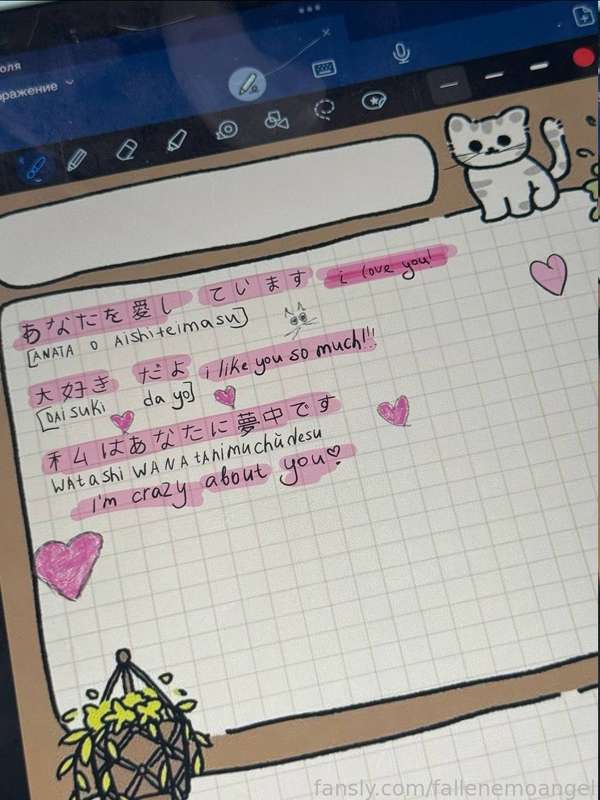 оля
ображение
あなたを愛し ています i love you!
[ANATA O Aishiteimasu]
大好き だよ i like you so much!!!
[DAisuki da yo]
私はあなたに夢中です
WAtAshi WANAtAnimuchūdesu
i'm crazy about you
fansly.com/fallenemoangel